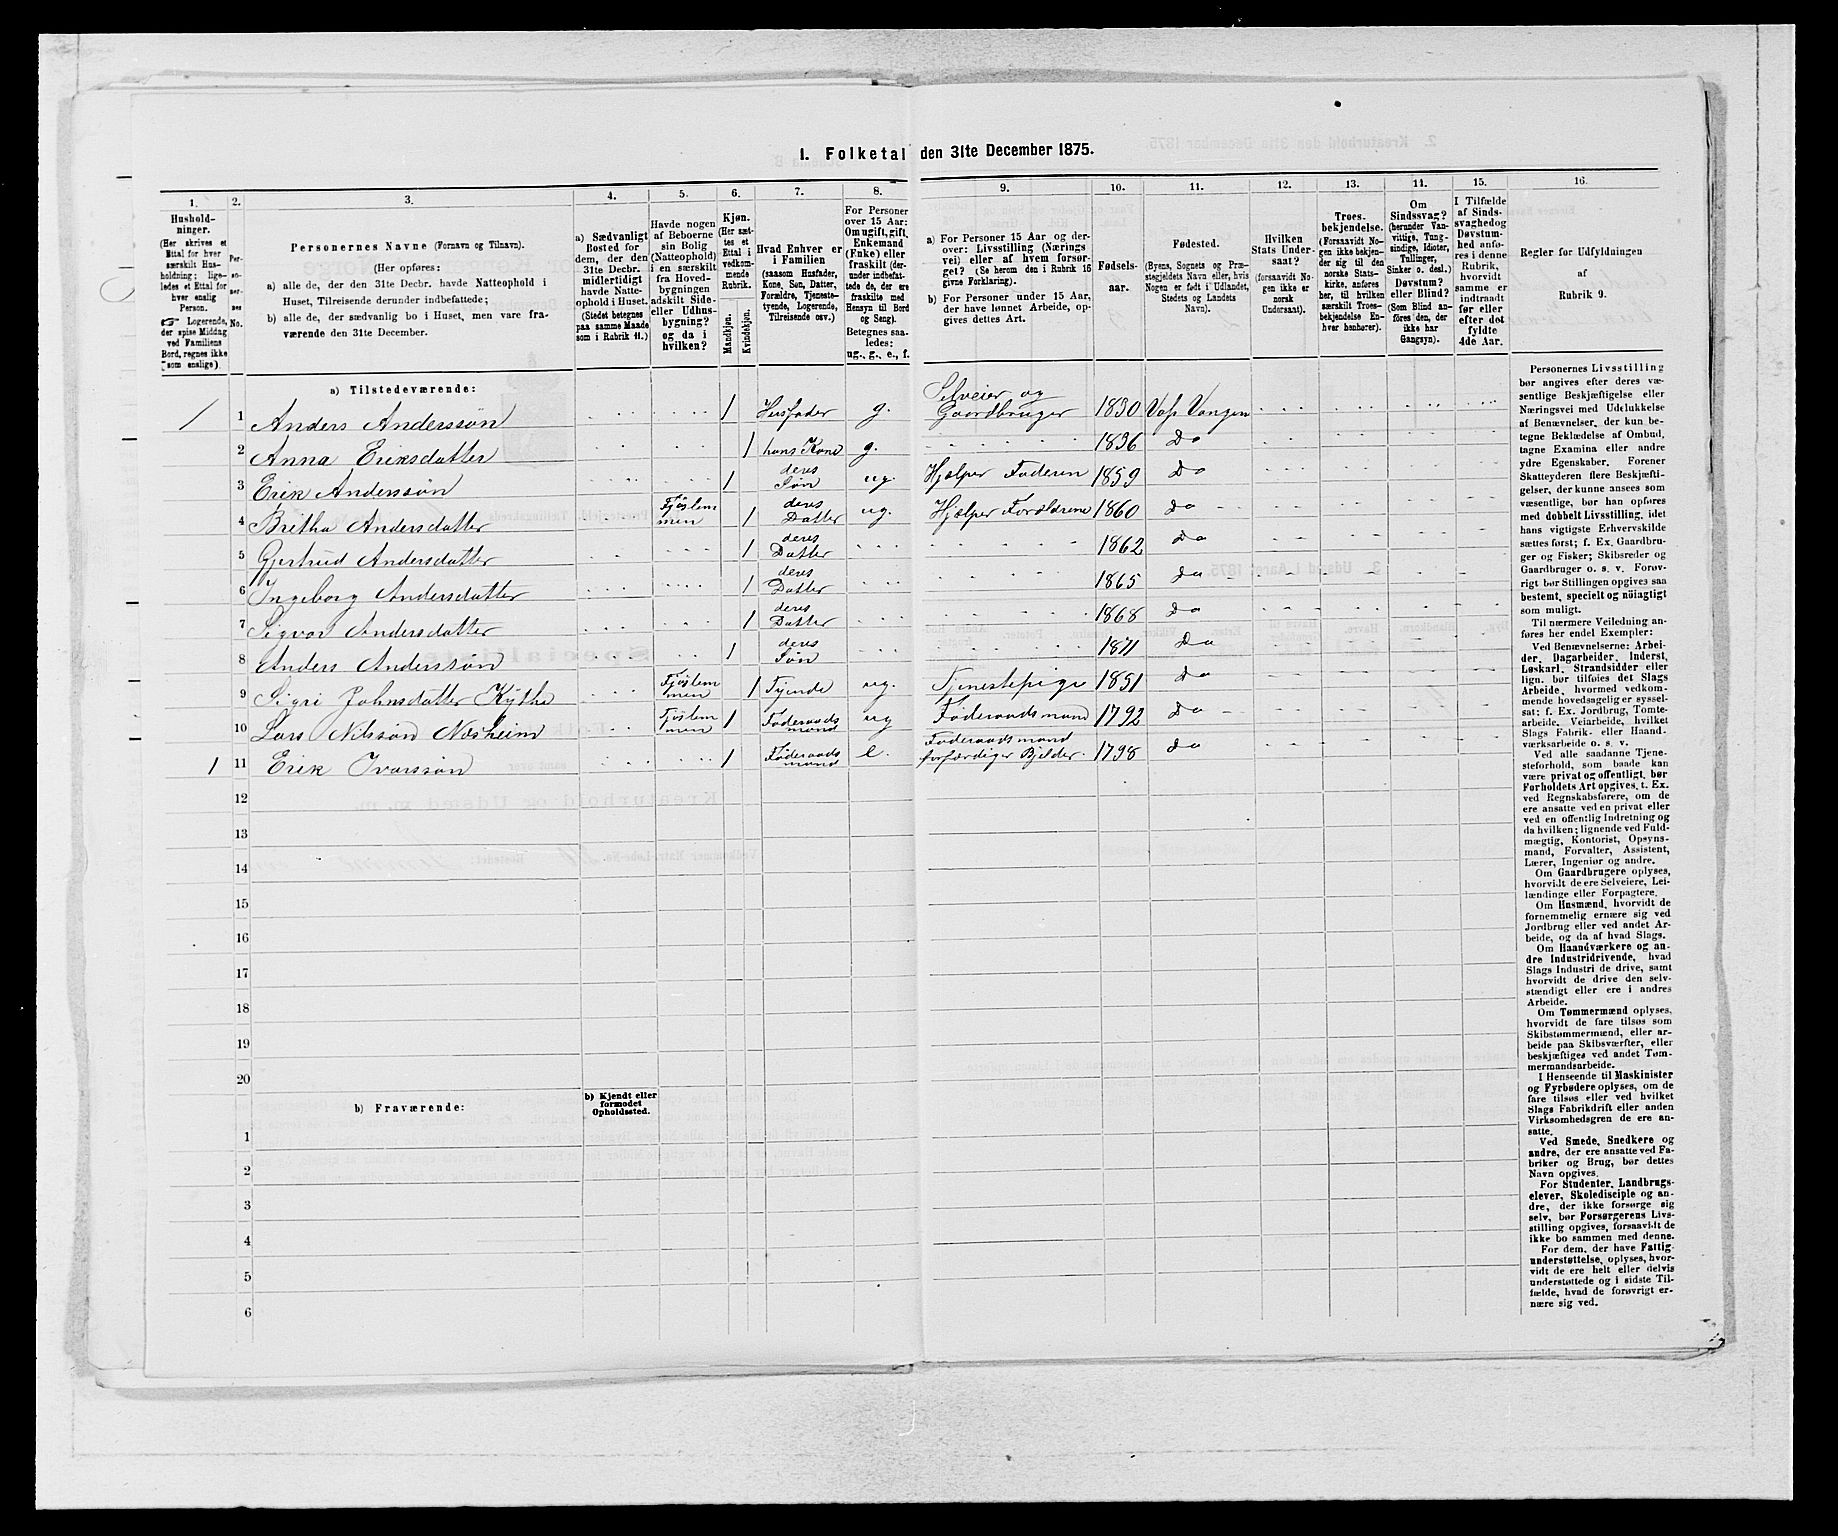 I. Folketal den 31te December 1875.
1. 2. 3. 4. 5. 6. 7. 8. 9. 10. 11. 12. 13. 14. 15. 16.
Hushold-
ninger.
(Her skrives et
Ettal for hver
særskilt Hus-
holdning; lige-
ledes et Ettal for
hver enslig
Person.
☞ Logerende,
der spise Middag
ved Familiens
Bord, regnes ikke
som enslige).
Per-
so-
ner-
nes
No.
Personernes Navne (Fornavn og Tilnavn).
(Her opføres:
a) alle de, der den 31te Decbr. havde Natteophold i
Huset, Tilreisende derunder indbefattede;
b) alle de, der sædvanlig bo i Huset, men vare fra-
værende den 31te December.
a) Sædvanligt
Bosted for
dem, der den
31te Decbr.
midlertidigt
havde Natte-
ophold i Huset.
(Stedet betegnes
paa samme Maade
som i Rubrik 11.)
Havde nogen
af Beboerne
sin Bolig
(Natteophold)
i en særskilt
fra Hoved-
bygningen
adskilt Side-
eller Udhus-
bygning?
og da i
hvilken?
Kjøn.
(Her sæt-
tes et
Ettal i
vedkom-
mende
Rubrik.
Mandkjøn.
Kvindekjøn.
Hvad Enhver er
i Familien
(saasom Husfader,
Kone, Søn, Datter,
Forældre, Tjeneste-
tyende, Logerende,
Tilreisende osv.)
For Personer
over 15 Aar:
Om ugift, gift,
Enkemand
(Enke) eller
fraskilt (der-
under indbefat-
tede de, der ere
fraskilte med
Hensyn til Bord
og Seng).
Betegnes saa-
ledes:
ug., g., e., f.
a) For Personer 15 Aar og der-
over: Livsstilling (Nærings
vei) eller af hvem forsør-
get? (Se herom den i Rubrik 16
givne Forklaring).
b) For Personer under 15 Aar,
der have lønnet Arbeide, op-
gives dettes Art.
Fødsels-
aar.
Fødested.
(Byens, Sognets og Præ-
stegjeldets Navn eller, hvis
Nogen er født i Udlandet,
Stedets og Landets
Navn).
Hvilken
Stats Under-
saat?
(forsaavidt No-
gen ikke er
norsk
Undersaat).
Troes-
bekjendelse.
(Forsaavidt No-
gen ikke bekjen-
der sig til den
norske Stats-
kirke, anføres
her, til hvilken
særskilt Troes-
bekjendelse En-
hver henhører).
Om
Sindssvag?
(herunder Van-
vittige, Tung-
sindige, Idioter,
Tullinger,
Sinker o. desl.)
Døvstum?
eller Blind?
(Som Blind an-
føres den, der
ikke har
Gangsyn).
I Tilfælde
af Sinds-
svaghedog
Døvstum-
hed anfø-
res i denne
Rubrik,
hvorvidt
samme er
indtraadt
før eller
efter det
fyldte
4de Aar.
Regler for Udfyldningen
af
Rubrik 9.
a) Tilstedeværende:
1 1 Anders Anderssøn 1 Husfader g. Selveier og Gaardbruger 1830 Voss Vangen
2 Anna Eriksdatter 1 hans Kone g. 1836 Do
3 Erik Anderssøn 1 deres Søn ug. Hjælper Faderen 1859 Do
4 Britha Andersdatter 1 deres Datter ug. Hjælper Foreldrene 1860 Do
5 Gjertrud Andersdatter 1 deres Datter 1862 Do
6 Ingeborg Andersdatter 1 deres Datter 1865 Do
7 Sigvor Andersdatter 1 deres Datter 1868 Do
8 Anders Anderssøn 1 deres Søn 1871 Do
9 Sigri Johnsdatter Kÿthe 1 Tjende ug. Tjenestepige 1851 Do
10 Lars Nilssøn Næsheim 1 Føderaads mand ug Føderaads mand 1792 Do
1 11 Erik Ivarssøn 1 Føderaads mand e. Føderaads mand forfærdiger Bjelder 1798 Do
12
13
14
15
16
17
18
19
20
b) Fraværende:
b) Kjendt eller
formodet
Opholdssted.
1
2
3
4
5
6
Personernes Livsstilling
bør angives efter deres væ-
sentlige Beskjæftigelse eller
Næringsvei med Udelukkelse
af Benævnelser, der kun be-
tegne Beklædelse af Ombud,
tagne Examina eller andre
ydre Egenskaber. Forener
Skatteyderen flere Beskjæfti-
gelser, der kunne ansees som
væsentlige, bør han opføres
med dobbelt Livsstilling, idet
hans vigtigste Erhvervskilde
sættes først; f. Ex. Gaardbru-
ger og Fisker; Skibsreder og
Gaardbruger o. s. v. Forøv-
rigt bør Stillingen opgives saa
bestemt, specielt og nöiagtigt
som muligt.
Til nærmere Veiledning an-
føres her endel Exempler:
Ved Benævnelserne: Arbei-
der, Dagarbeider, Inderst,
Løskarl, Strandsidder eller
lign. bør tilføies det Slags
Arbeide, hvormed vedkom-
mende hovedsagelig er syssel-
sat; f. Ex. Jordbrug, Tomte-
arbeide, Veiarbeide, hvilket
Slags Fabrik- eller Haand-
værksarbeide o. s. v.
Ved alle saadanne Tjene-
steforhold, som baade kan
være privat og offentligt, bør
Forholdets Art opgives, t. Ex.
ved Regnskabsførere, om de
ere ansatte ved en privat eller
ved en offentlig Indretning og
da hvilken; lignende ved Fuld-
mægtig, Kontorist, Opsyns-
mand, Forvalter, Assistent,
Lærer, Ingeniør og andre.
Om Gaardbrugere oplyses,
hvorvidt de ere Selveiere, Lei-
lændinge eller Forpagtere.
Om Husmænd, hvorvidt de
fornemmelig ernære sig ved
Jordbrug eller ved andet Ar-
beide, og da af hvad Slags.
Om Haandværkere og an-
dre Industridrivende, hvad
Slags Industri de drive, samt
hvorvidt de drive den selv-
stændigt eller ere i andres
Arbeide.
Om Tømmermænd oplyses,
hvorvidt de fare tilsøs som
Skibstømmermænd, eller ar-
beide paa Skibsværfter, eller
beskjæftiges ved andet Tøm-
mermandsarbeide.
I Henseende til Maskinister
og Fyrbødere oplyses, om de
fare tilsøs eller ved hvilket
Slags Fabrikdrift eller anden
Virksomhedsgren de ere an-
satte.
Ved Smede, Snedkere og
andre, der ere ansatte ved Fa-
briker og Brug, bør dettes
Navn opgives.
For Studenter, Landbrugs-
elever, Skoledisciple og an-
dre, der ikke forsørge sig
selv, bør Forsørgerens Livs-
stilling opgives, forsaavidt de
ikke bo sammen med denne.
For dem, der have Fattig-
understøttelse, oplyses, hvor-
vidt de ere helt eller delvis
understøttede og i sidste Til-
fælde, hvad de forøvrigt er-
nære sig ved.